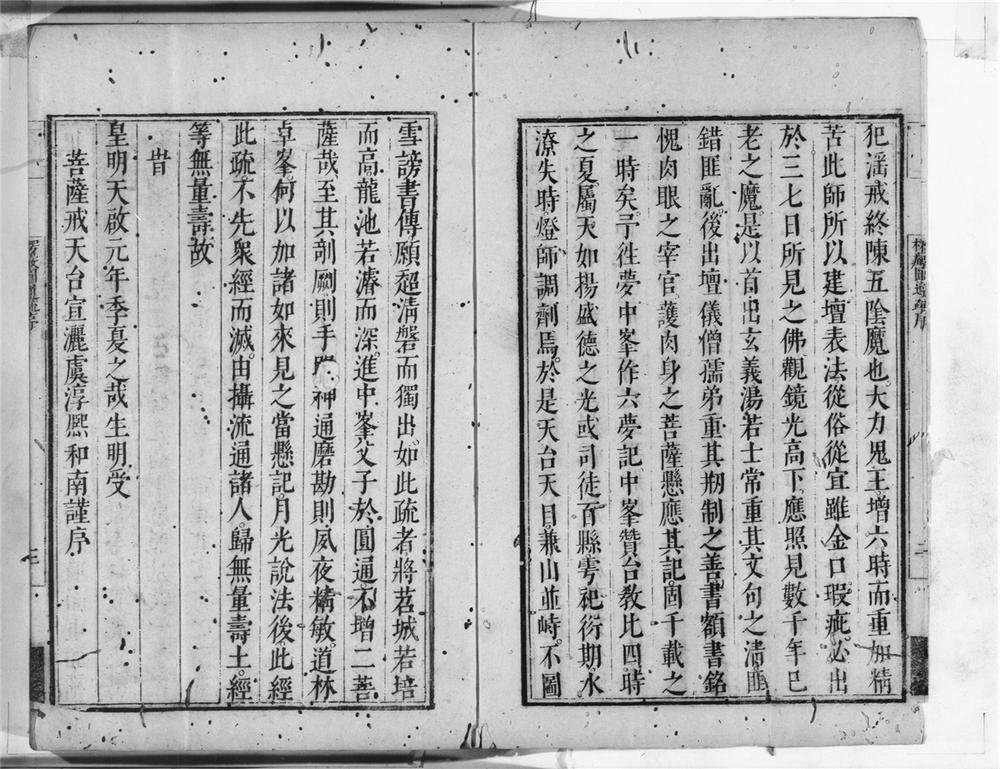 犯淫戒終陳五陰魔也大力鬼王增六時而重加精
苦此師所以建壇表法從俗從宜雖金口瑕疵必出
於三七日所見之佛觀鏡光高下應照見數千年已
老之魔是以首出玄義湯若士常重其文句之清匪
錯匪亂後出壇儀僧孺弟重其刱制之善書額書銘
愧肉眼之宰官護肉身之菩薩懸應其記固千載之
一時矣予徃夢中峯作六夢記中峯贊台教比四時
之夏屬天如揚盛德之光或司徒百縣雩祀衍期水
潦失時燈師調劑焉於是天台天目兼山並峙不圖
雪謗書傳願超清磐而獨出如此疏者將苕城若培
而高龍池若濬而深進中峯父子於圓通不增二菩
薩哉至其剞劂則手 神通磨勘則夙夜精敏道林
卓峯何以加諸如來見之當懸記月光說法後此經
此疏不先衆經而滅由攝流通諸人歸無量壽土經
等無量壽故
旹
皇明天啟元年季夏之哉生明受
菩薩戒天台宣灑虞淳熈和南謹序